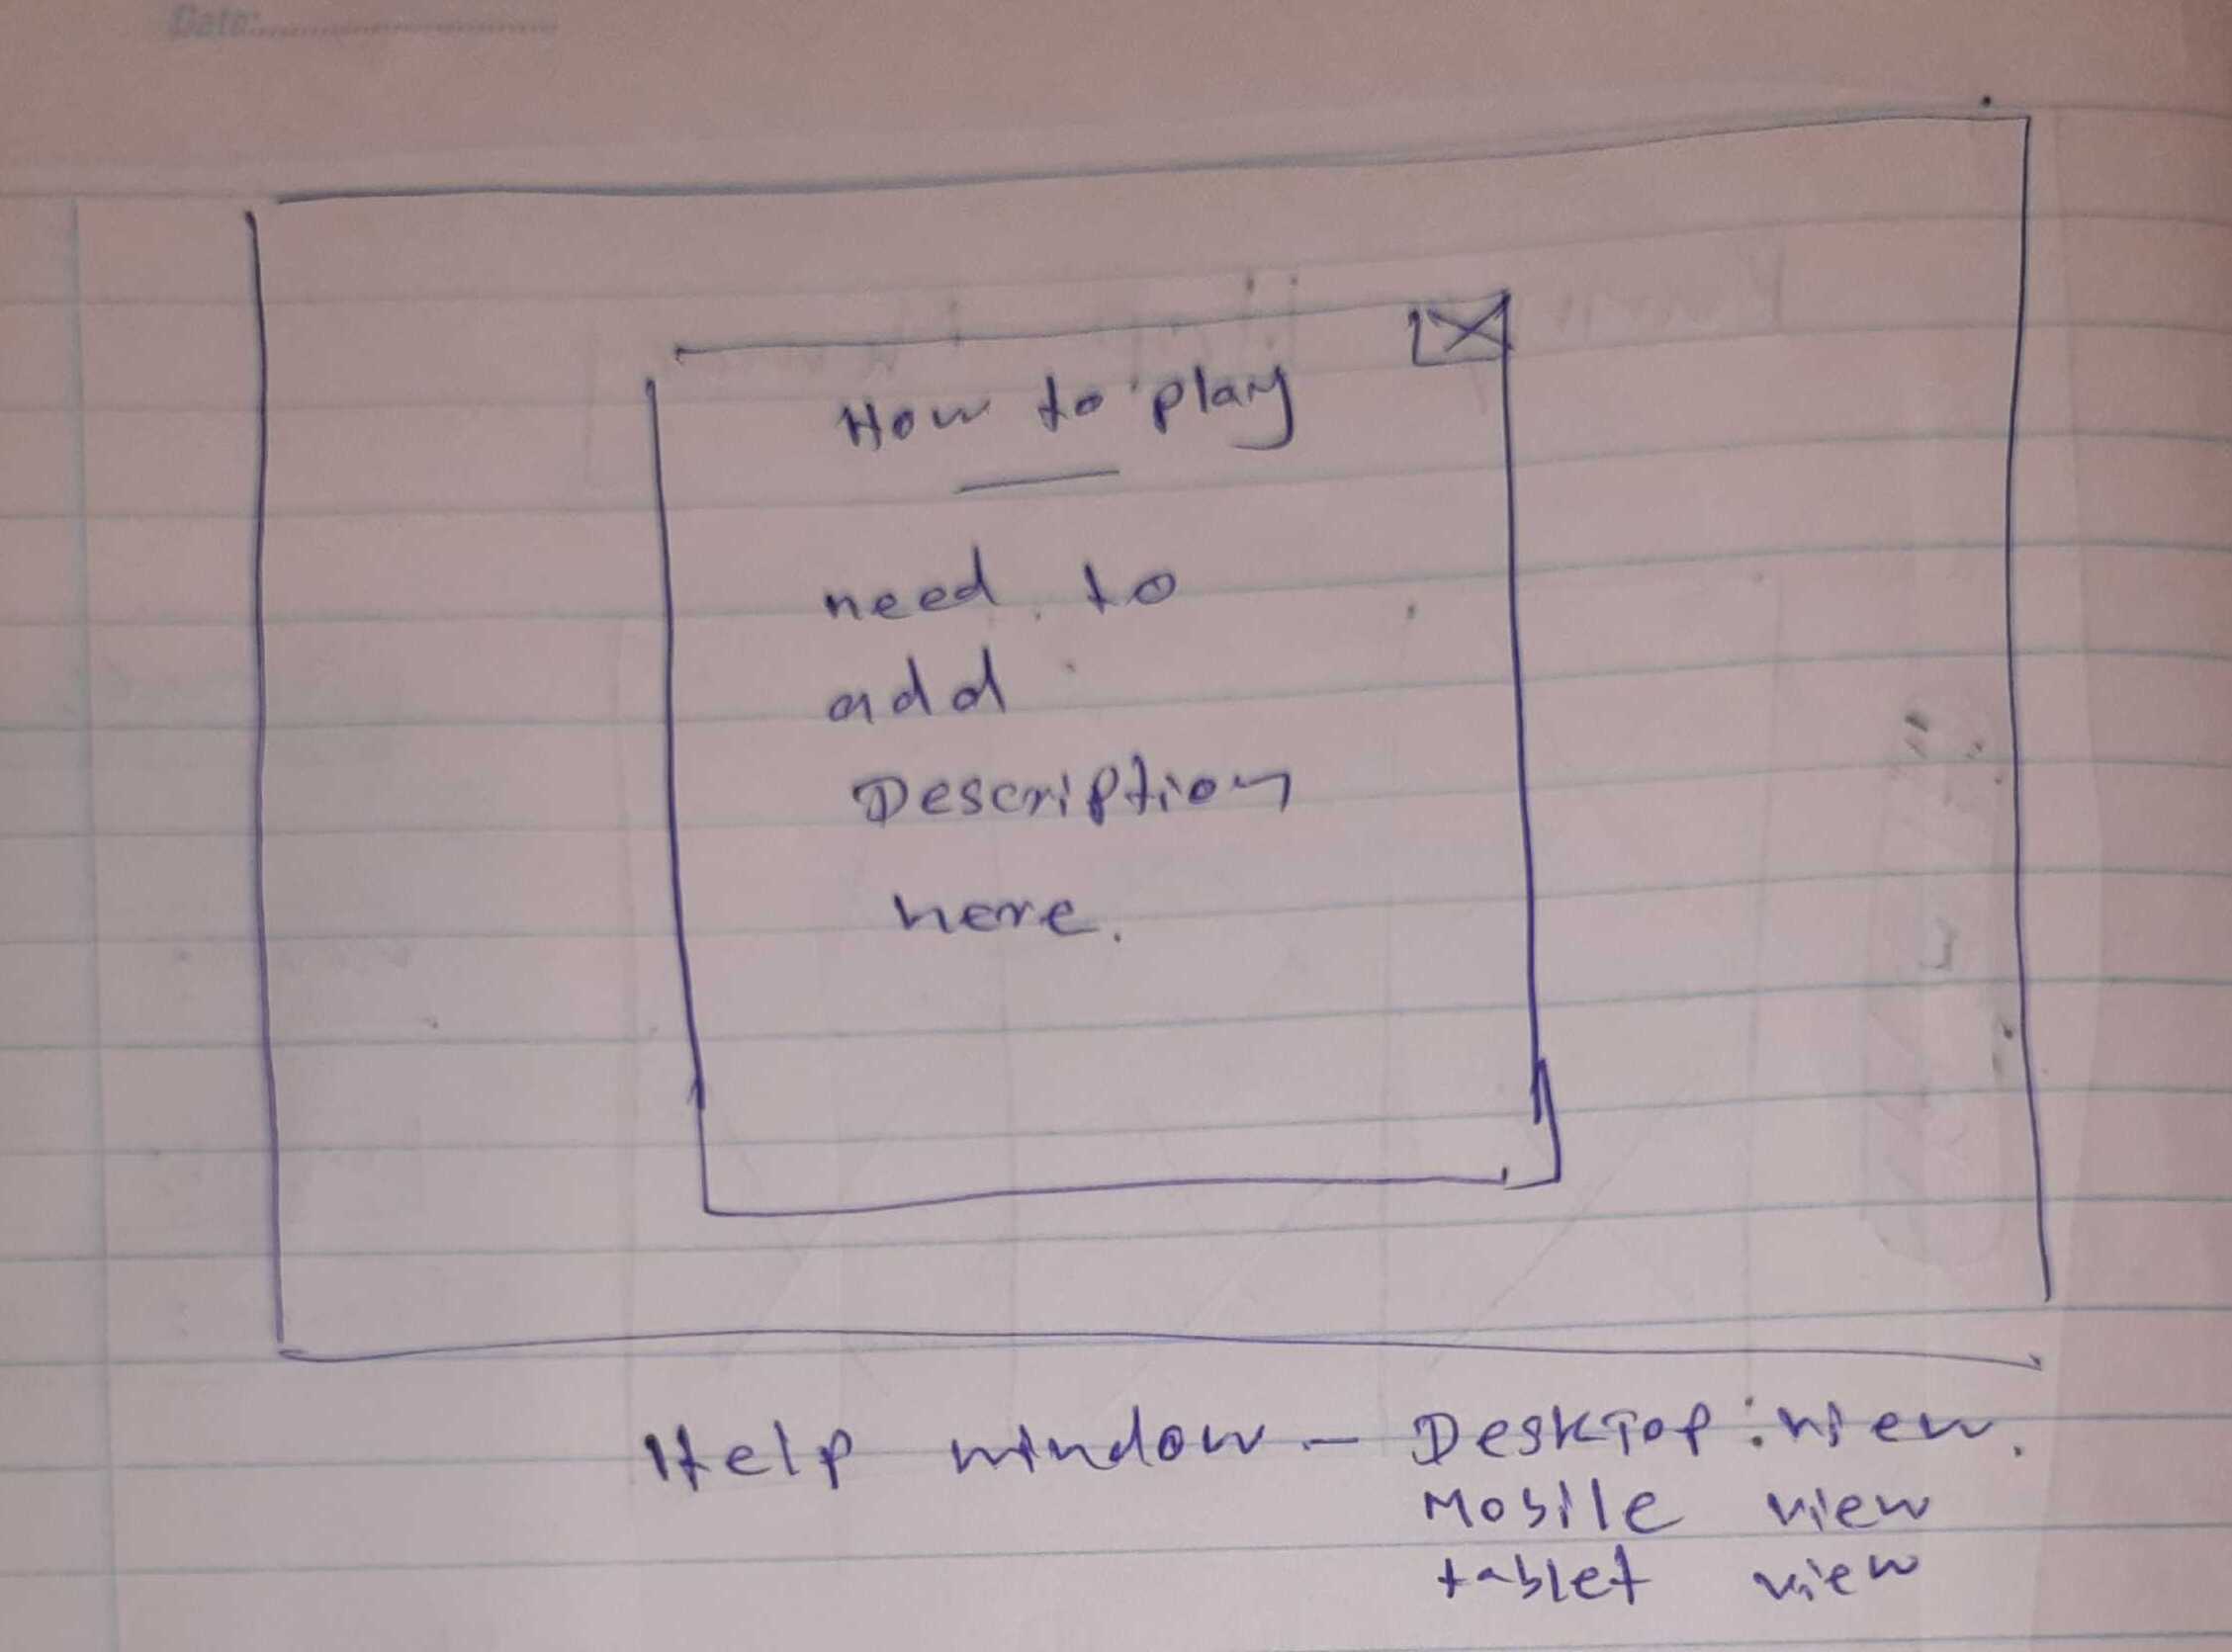 Date:
How to play
need to
add
Description
here.
Help window - Desktop view.
Mobile view
tablet view